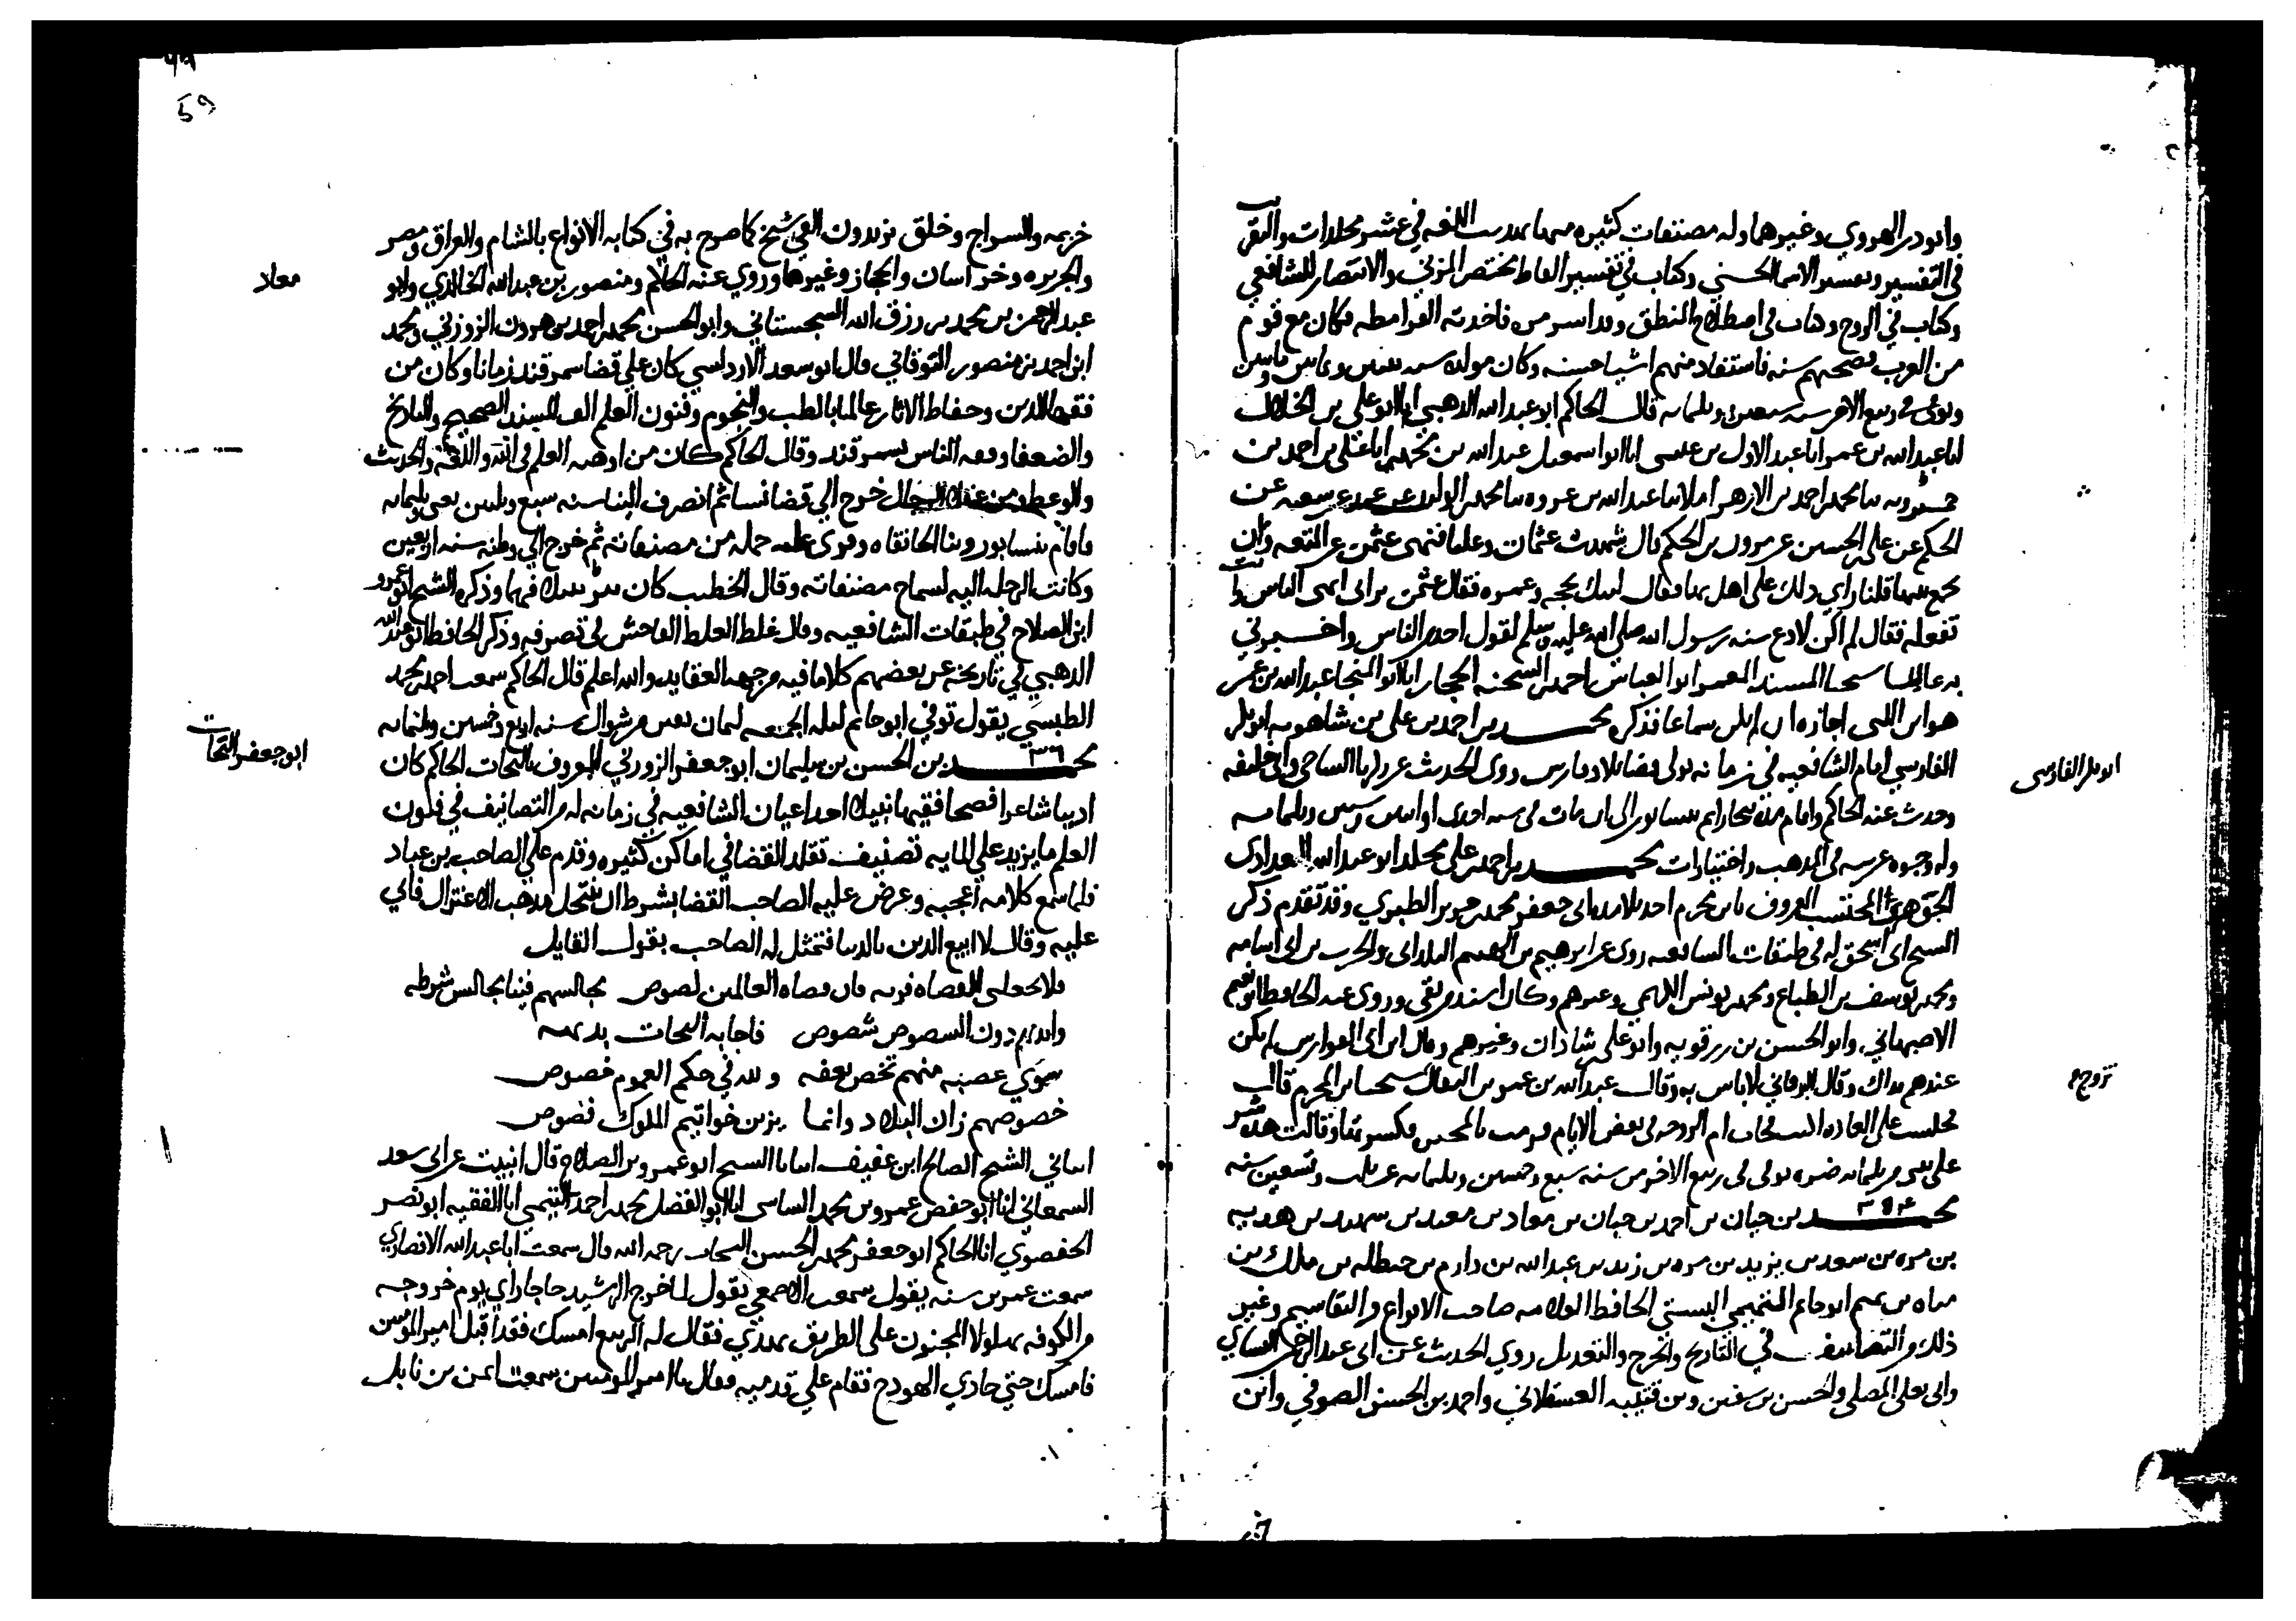 وابو ذر الهروي وغيرهما وله مصنفات كثيره منها تهذيب اللغه في عشر مجلدات والتقريب
في التفسير وتفسير الاسما الحسني وكتاب في تفسير الفاظ مختصر المزني والانتصار للشافعي
وكتاب في الروح وكتاب في اصطلاح المنطق وقد اسر مره فاخذته القرامطه فكان مع قوم
من العرب فصحبهم سنه فاستفاد منهم اشيا حسنه وكان مولده سنه
وتوفي في ربيع الاخر سنه سبعين وثلثمايه قال الحاكم ابو عبد الله الذهبي انا ابو علي بن الخلال
انا عبد الله بن عمر انا عبد الاول بن عيسى انا ابو اسمعيل عبد الله بن محمد انا علي بن احمد بن
محمد بن احمد بن الازهر املا ثنا عبد الله بن عروه ثنا محمد بن الوليد عن غندر عن شعبه عن
الحكم عن علي بن الحسين عن مروان بن الحكم قال شهدت عثمان وعليا فنهى عثمن عن المتعه وان
يجمع بينهما فلما راي ذلك علي اهل بهما فقال لبيك بحجه وعمره فقال عثمن تراني انهى الناس وانت
تفعله فقال لم اكن لادع سنه رسول الله صلى الله عليه وسلم لقول احد من الناس واخبرني
به عاليا شيخنا المسند المعمر ابو العباس احمد بن الشحنه الحجار انا ابو المنجا عبد الله بن عمر
هو ابن اللتي اجازه ان لم يكن سماعا فذكره محمد بن احمد بن علي بن شاهويه ابو بكر
الفارسي امام الشافعيه في زمانه تولى قضا بلاد فارس روى الحديث عن زكريا الساجي وابي خليفه
وحدث عنه الحاكم واقام مده ببخارا ثم بنيسابور الى ان مات في سنه احدى او اثنين وستين وثلثمايه
وله وجوه غريبه في المذهب واختيارات محمد بن احمد بن علي بن مخلد ابو عبد الله البغدادي
الجوهري المحتسب المعروف بابن محرم احد تلامذه ابي جعفر محمد بن جرير الطبري وقد تقدم ذكر
الشيخ ابي اسحق له في طبقات الشافعيه روى عن ابرهيم بن الهيثم البلدي والحرث بن ابي اسامه
ومحمد بن يوسف بن الطباع ومحمد بن يونس الكديمي وغيرهم وكان اسند من بقي وروى عنه الحافظ ابو نعيم
الاصبهاني وابو الحسن بن رزقويه وابو علي بن شاذان وغيرهم وقال ابن ابي الفوارس لم يكن
عندهم بذاك وقال البرقاني لا باس به وقال عبد الله بن عمر بن البقال شيخنا ابن المحرم قال
فجلست على العاده اكتب فجات ام الزوجه في بعض الايام فرمت بالمحبره فكسرتها وقالت هذه شر
على بنتي من ثلثمايه ضره توفي في ربيع الاخر من سنه سبع وخمسين وثلثمايه عن ثلث وتسعين سنه
محمد بن حبان بن احمد بن حبان بن معاذ بن معبد بن سهيد بن هديه
بن مره بن سعد بن يزيد بن مره بن زيد بن عبد الله بن دارم بن حنظله بن ملك بن
مناه بن تميم ابو حاتم التميمي البستي الحافظ العلامه صاحب الانواع والتقاسيم وغير
ذلك من التصانيف في التاريخ والجرح والتعديل روي الحديث عن ابي عبد الرحمن النسائي
وابي يعلي الموصلي والحسن بن سفين وبن قتيبه العسقلاني واحمد بن الحسن الصوفي وابن
ابو بكر الفارسي
تزوج
59
خزيمه والسراج وخلق يزيدون الفي شيخ كما صرح به في كتابه الانواع بالشام والعراق ومصر
والجزيره وخراسان والحجاز وغيرها وروي عنه الحاكم ومنصور بن عبد الله الخالدي وابو
عبد الرحمن بن محمد بن رزق الله السجستاني وابو الحسن محمد بن احمد بن هرون الزوزني ومحمد
ابن احمد بن منصور النوقاني قال ابو سعد الادريسي كان علي قضا سمرقند زمانا وكان من
فقها الدين وحفاظ الاثار عالما بالطب والنجوم وفنون العلم الف المسند الصحيح والتاريخ
والضعفا وفقه الناس بسمرقند وقال الحاكم كان من اوعيه العلم في الفقه واللغه والحديث
والوعظ ومن عقلا الرجال خرج الي قضا نسا ثم انصرف الينا سنه سبع وثلثين يعني وثلثمايه
فاقام بنيسابور وبنا الخانقاه وقري عليه جمله من مصنفاته ثم خرج الي وطنه سنه اربعين
وكانت الرحله اليه لسماع مصنفاته وقال الخطيب كان ثقه نبيلا فهما وذكره الشيخ ابو عمرو
ابن الصلاح في طبقات الشافعيه وقال غلط الغلط الفاحش في تصرفه وذكر الحافظ ابو عبد الله
الذهبي في تاريخه عن بعضهم كلاما فيه من جهه العقايد والله اعلم قال الحاكم سمعت احمد بن محمد
الطبسي يقول توفي ابو حاتم ليله الجمعه لثمان بقين من شوال سنه اربع وخمسين وثلثمايه
محمد بن الحسن بن سليمان ابو جعفر الزوزني المعروف بالبحاث الحاكم كان
اديبا شاعرا فصيحا فقيها نبيلا احد اعيان الشافعيه في زمانه له من التصانيف في فنون
العلم ما يزيد علي المايه تصنيف تقلد القضا في اماكن كثيره وقدم علي الصاحب بن عباد
فلما سمع كلامه اعجبه وعرض عليه الصاحب القضا بشرط ان ينتحل مذهب الاعتزال فابي
عليه وقال لا ابيع الدين بالدنيا فتمثل له الصاحب بقول القايل
فلا تجعلني للقضاه فريسه فان قضاه العالمين لصوص مجالسهم فينا مجالس شرطه
وايديهم دون الشصوص شصوص فاجابه البحاث بديهه
سوي عصبه منهم تخص بعفه ولله في حكم العموم خصوص
خصوصهم زان البلاد وانما يزين خواتيم الملوك فصوص
انباني الشيخ الصالح ابن عفيف انبانا الشيخ ابو عمرو بن الصلاح قال انبيت عن ابي سعد
السمعاني انا ابو حفص عمرو بن محمد الشاسي انا ابو الفضل محمد بن احمد التميمي انا الفقيه ابو نصر
الحفصوي انا الحاكم ابو جعفر محمد بن الحسن البحاث رحمه الله قال سمعت ابا عبد الله الانصاري
سمعت عمر بن شبه يقول سمعت الاصمعي يقول لما خرج الرشيد حاجا راي يوم خروجه
من الكوفه بهلولا المجنون على الطريق يهذي فقال له الربيع امسك فقد اقبل امير المومنين
فامسك حتي حاذي الهودج فقام علي قدميه فقال يا امير المومنين سمعت ايمن بن نابل
معاد
ابو جعفر البحاث